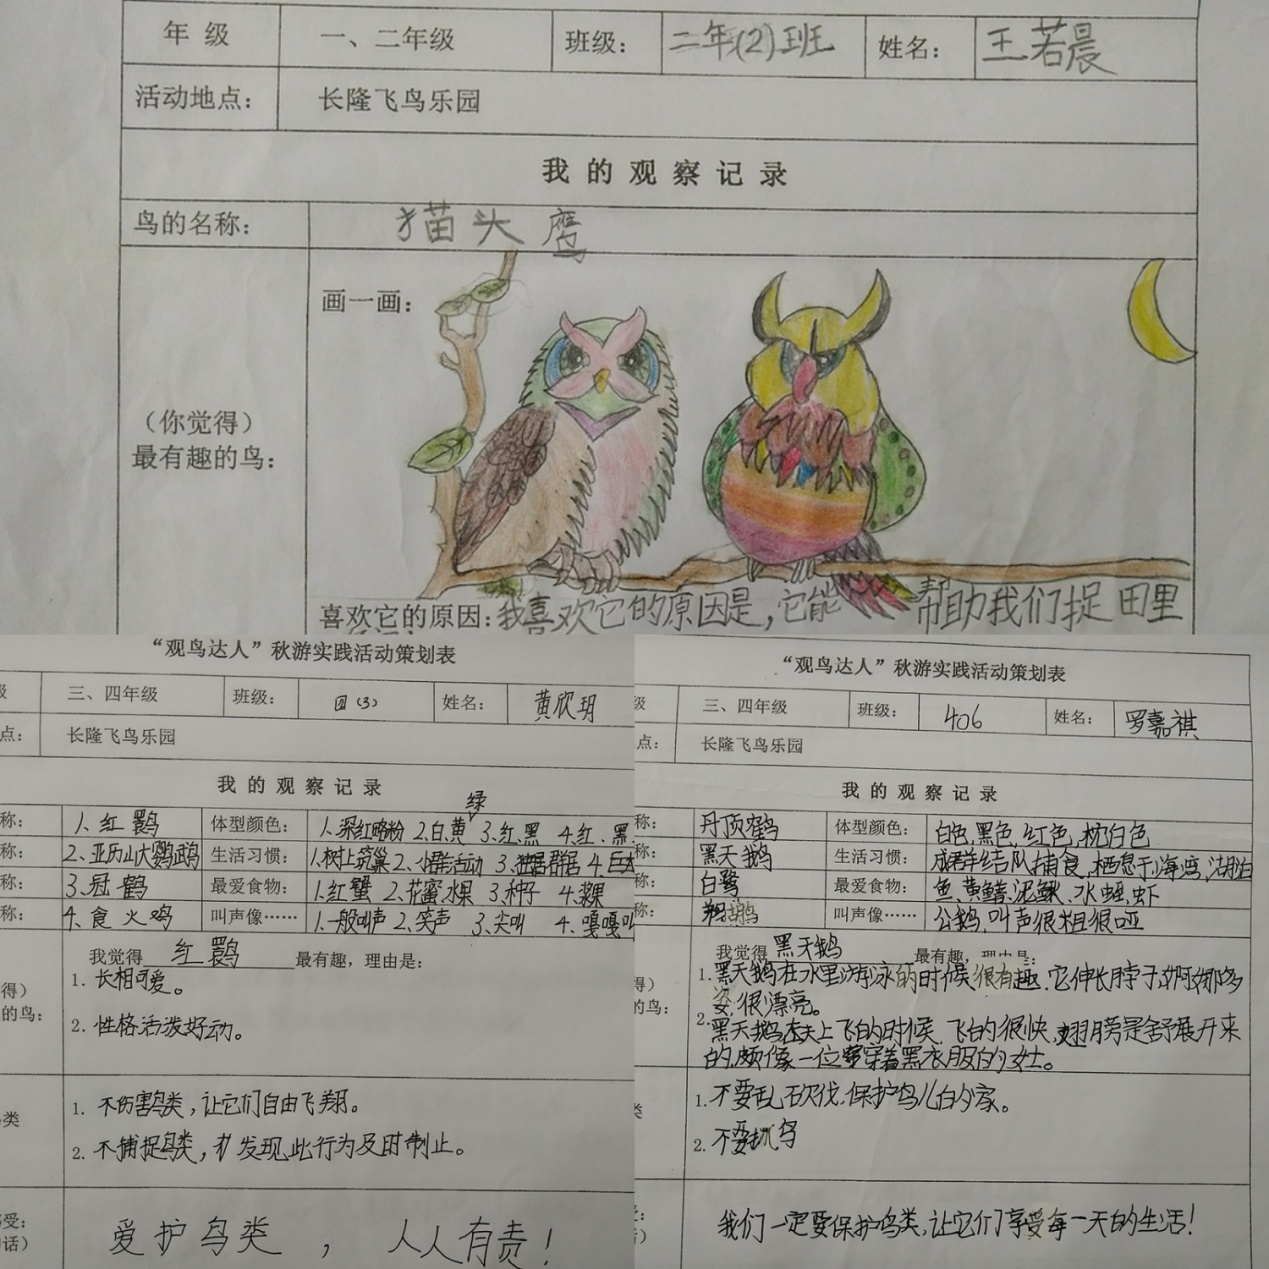 年 级 一、二年级 班级： 二年(2)班 姓名： 王若晨
活动地点： 长隆飞鸟乐园
我 的 观 察 记 录
鸟的名称： 猫头鹰
画一画：
（你觉得）
最有趣的鸟：
喜欢它的原因：我喜欢它的原因是，它能帮助我们捉田里
“观鸟达人”秋游实践活动策划表
级 三、四年级 班级： 四(3) 姓名： 黄欣玥
点： 长隆飞鸟乐园
我 的 观 察 记 录
绿
称： 1、红鹮 体型颜色： 1.深红略粉 2.白、黄 3.红、黑 4.红、黑
称： 2、亚历山大鹦鹉 生活习惯： 1.树上筑巢 2、小群活动 3、独居群居 4、
称： 3、冠鹤 最爱食物： 1.红蟹 2、花蜜水果 3、种子 4、
称： 4、食火鸡 叫声像…… 1.一般叫声 2、笑声 3、尖叫 4、嘎嘎叫
我觉得 红鹮 最有趣，理由是：
得）
的鸟：
1. 长相可爱。
2. 性格活泼好动。
类
1. 不伤害鸟类，让它们自由飞翔。
2. 不捕捉鸟类，扩发现此行为及时制止。
受：
话）
爱护鸟类，人人有责！
“观鸟达人”秋游实践活动策划表
级 三、四年级 班级： 406 姓名： 罗嘉祺
点： 长隆飞鸟乐园
我 的 观 察 记 录
称： 丹顶鹤 体型颜色： 白色,黑色,红色,枕白色
称： 黑天鹅 生活习惯： 成群结队捕食,栖息于海湾,湖泊
称： 白鹭 最爱食物： 鱼,黄鳝,泥鳅,水蛭,虾
称： 叫声像…… 公鹅,叫声很粗很哑
我觉得 黑天鹅 最有趣，理由是：
得）
的鸟：
1. 黑天鹅在水里游泳的时候很有趣.它伸长脖子,婀娜多
姿,很漂亮。
2. 黑天鹅在天上飞的时候,飞的很快,翅膀是舒展开来
的,颇像一位穿着黑衣服的女士。
类
1. 不要乱砍伐,保护鸟儿的家。
2. 不要抓鸟
受：
话）
我们一定要保护鸟类,让它们享受每一天的生活!